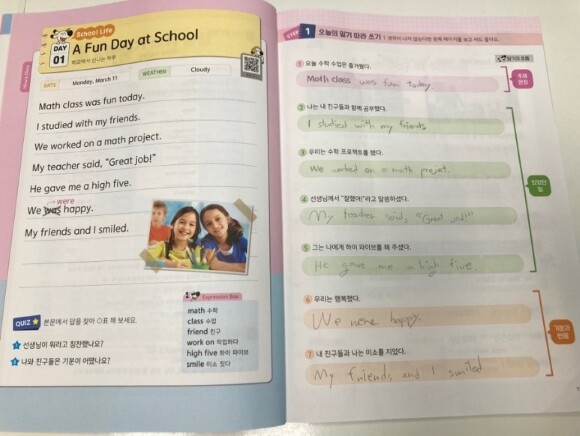 School Life
DAY
01
A Fun Day at School
학교에서 신나는 하루
DATE Monday, March 11 WEATHER Cloudy
Math class was fun today.
I studied with my friends.
We worked on a math project.
My teacher said, "Great job!"
He gave me a high five.
were
We was happy.
My friends and I smiled.
Expression Box
math 수학
class 수업
friend 친구
work on 작업하다
high five 하이 파이브
smile 미소 짓다
QUIZ 본문에서 답을 찾아 ○표 해 보세요.
1 선생님이 뭐라고 칭찬했나요?
2 나와 친구들은 기분이 어땠나요?
STEP 1 오늘의 일기 따라 쓰기
1 오늘 수학 수업은 즐거웠다.
Math class was fun today
2 나는 내 친구들과 함께 공부했다.
I studied with my friends
3 우리는 수학 프로젝트를 했다.
We worked on a math projet.
4 선생님께서 "잘했어!"라고 말씀하셨다.
My teacher said, "Great job!"
5 그는 나에게 하이 파이브를 해 주셨다.
He gave me a high five.
6 우리는 행복했다.
We were happy.
7 내 친구들과 나는 미소를 지었다.
My friends and I smiled